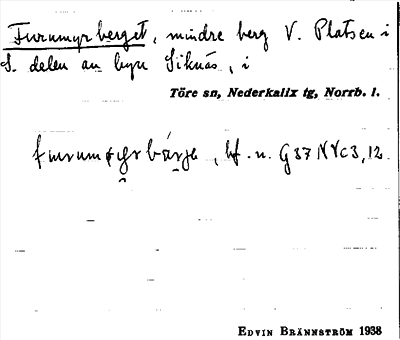 Furumyrberget, mindre berg V. Platsen i
S. delen av byn Siknäs, i
Töre sn, Nederkalix tg, Norrb. l.
bf. n. G37 NVc3,12.
EDVIN BRÄNNSTRÖM 1938